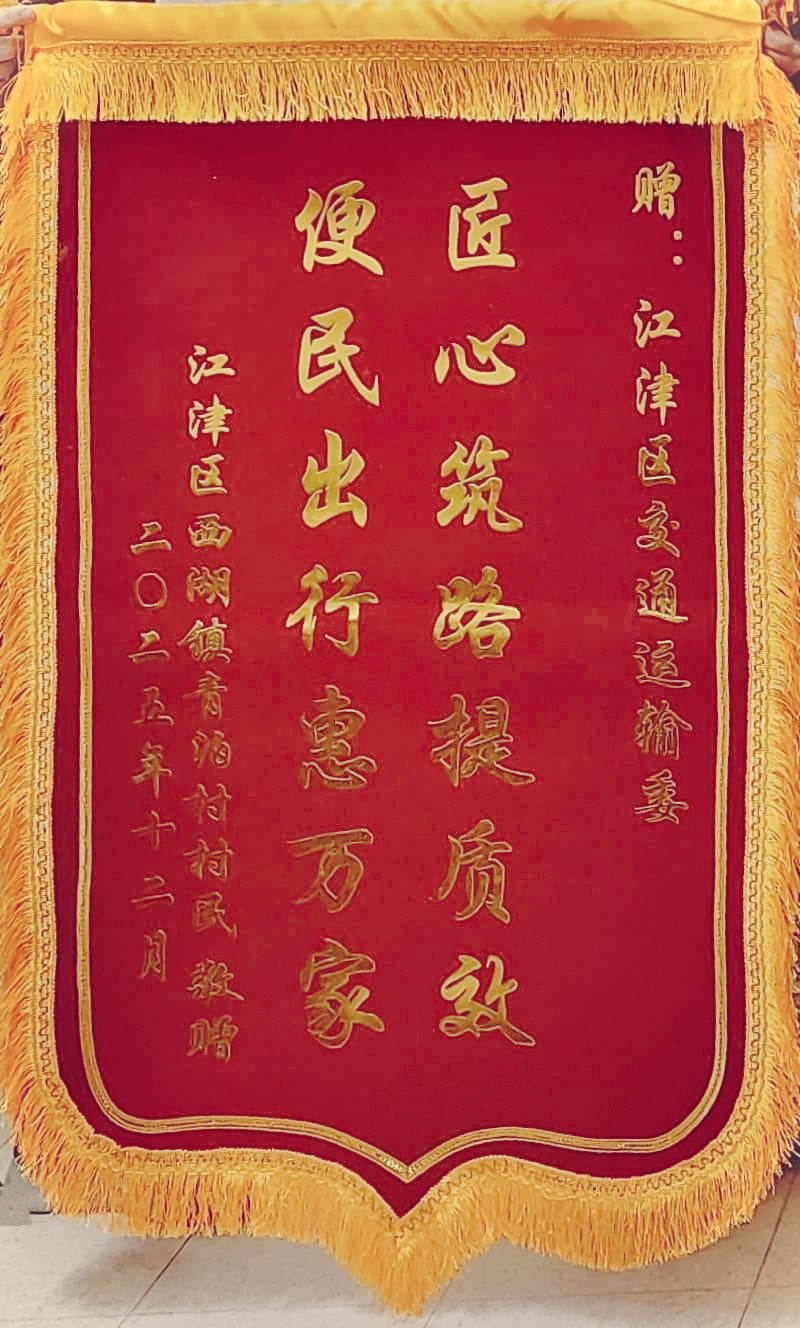 赠：江津区交通运输委
匠心筑路提质效
便民出行惠万家
江津区西湖镇青泊村村民 敬赠
二〇二五年十二月